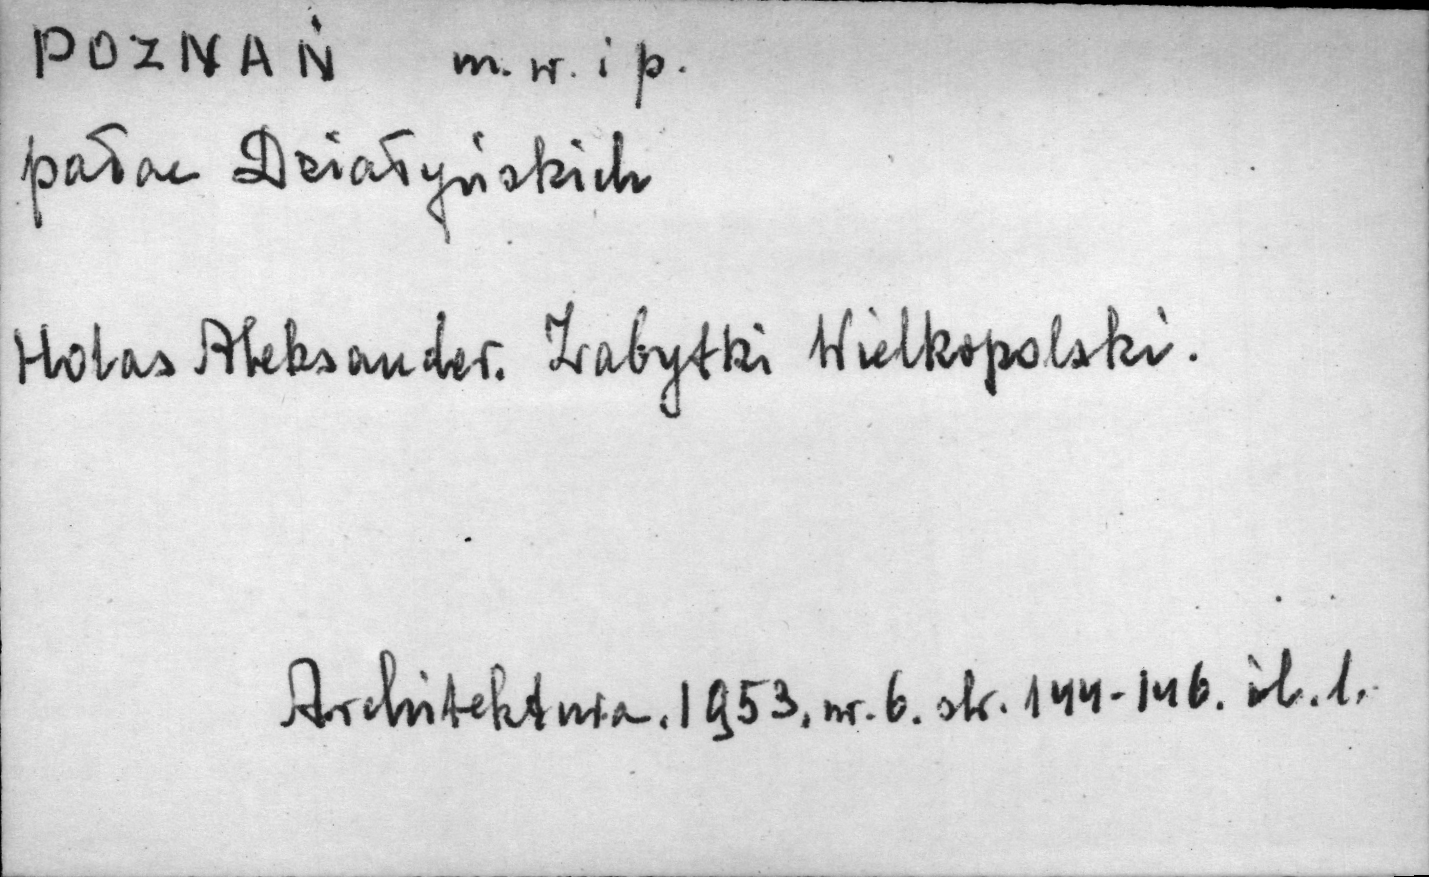 POZNAŃ m. w. i p.
pałac Działyńskich
Holas Aleksander. Zabytki Wielkopolski.
Architektura. 1953, nr. 6. str. 144-146. il. 1.